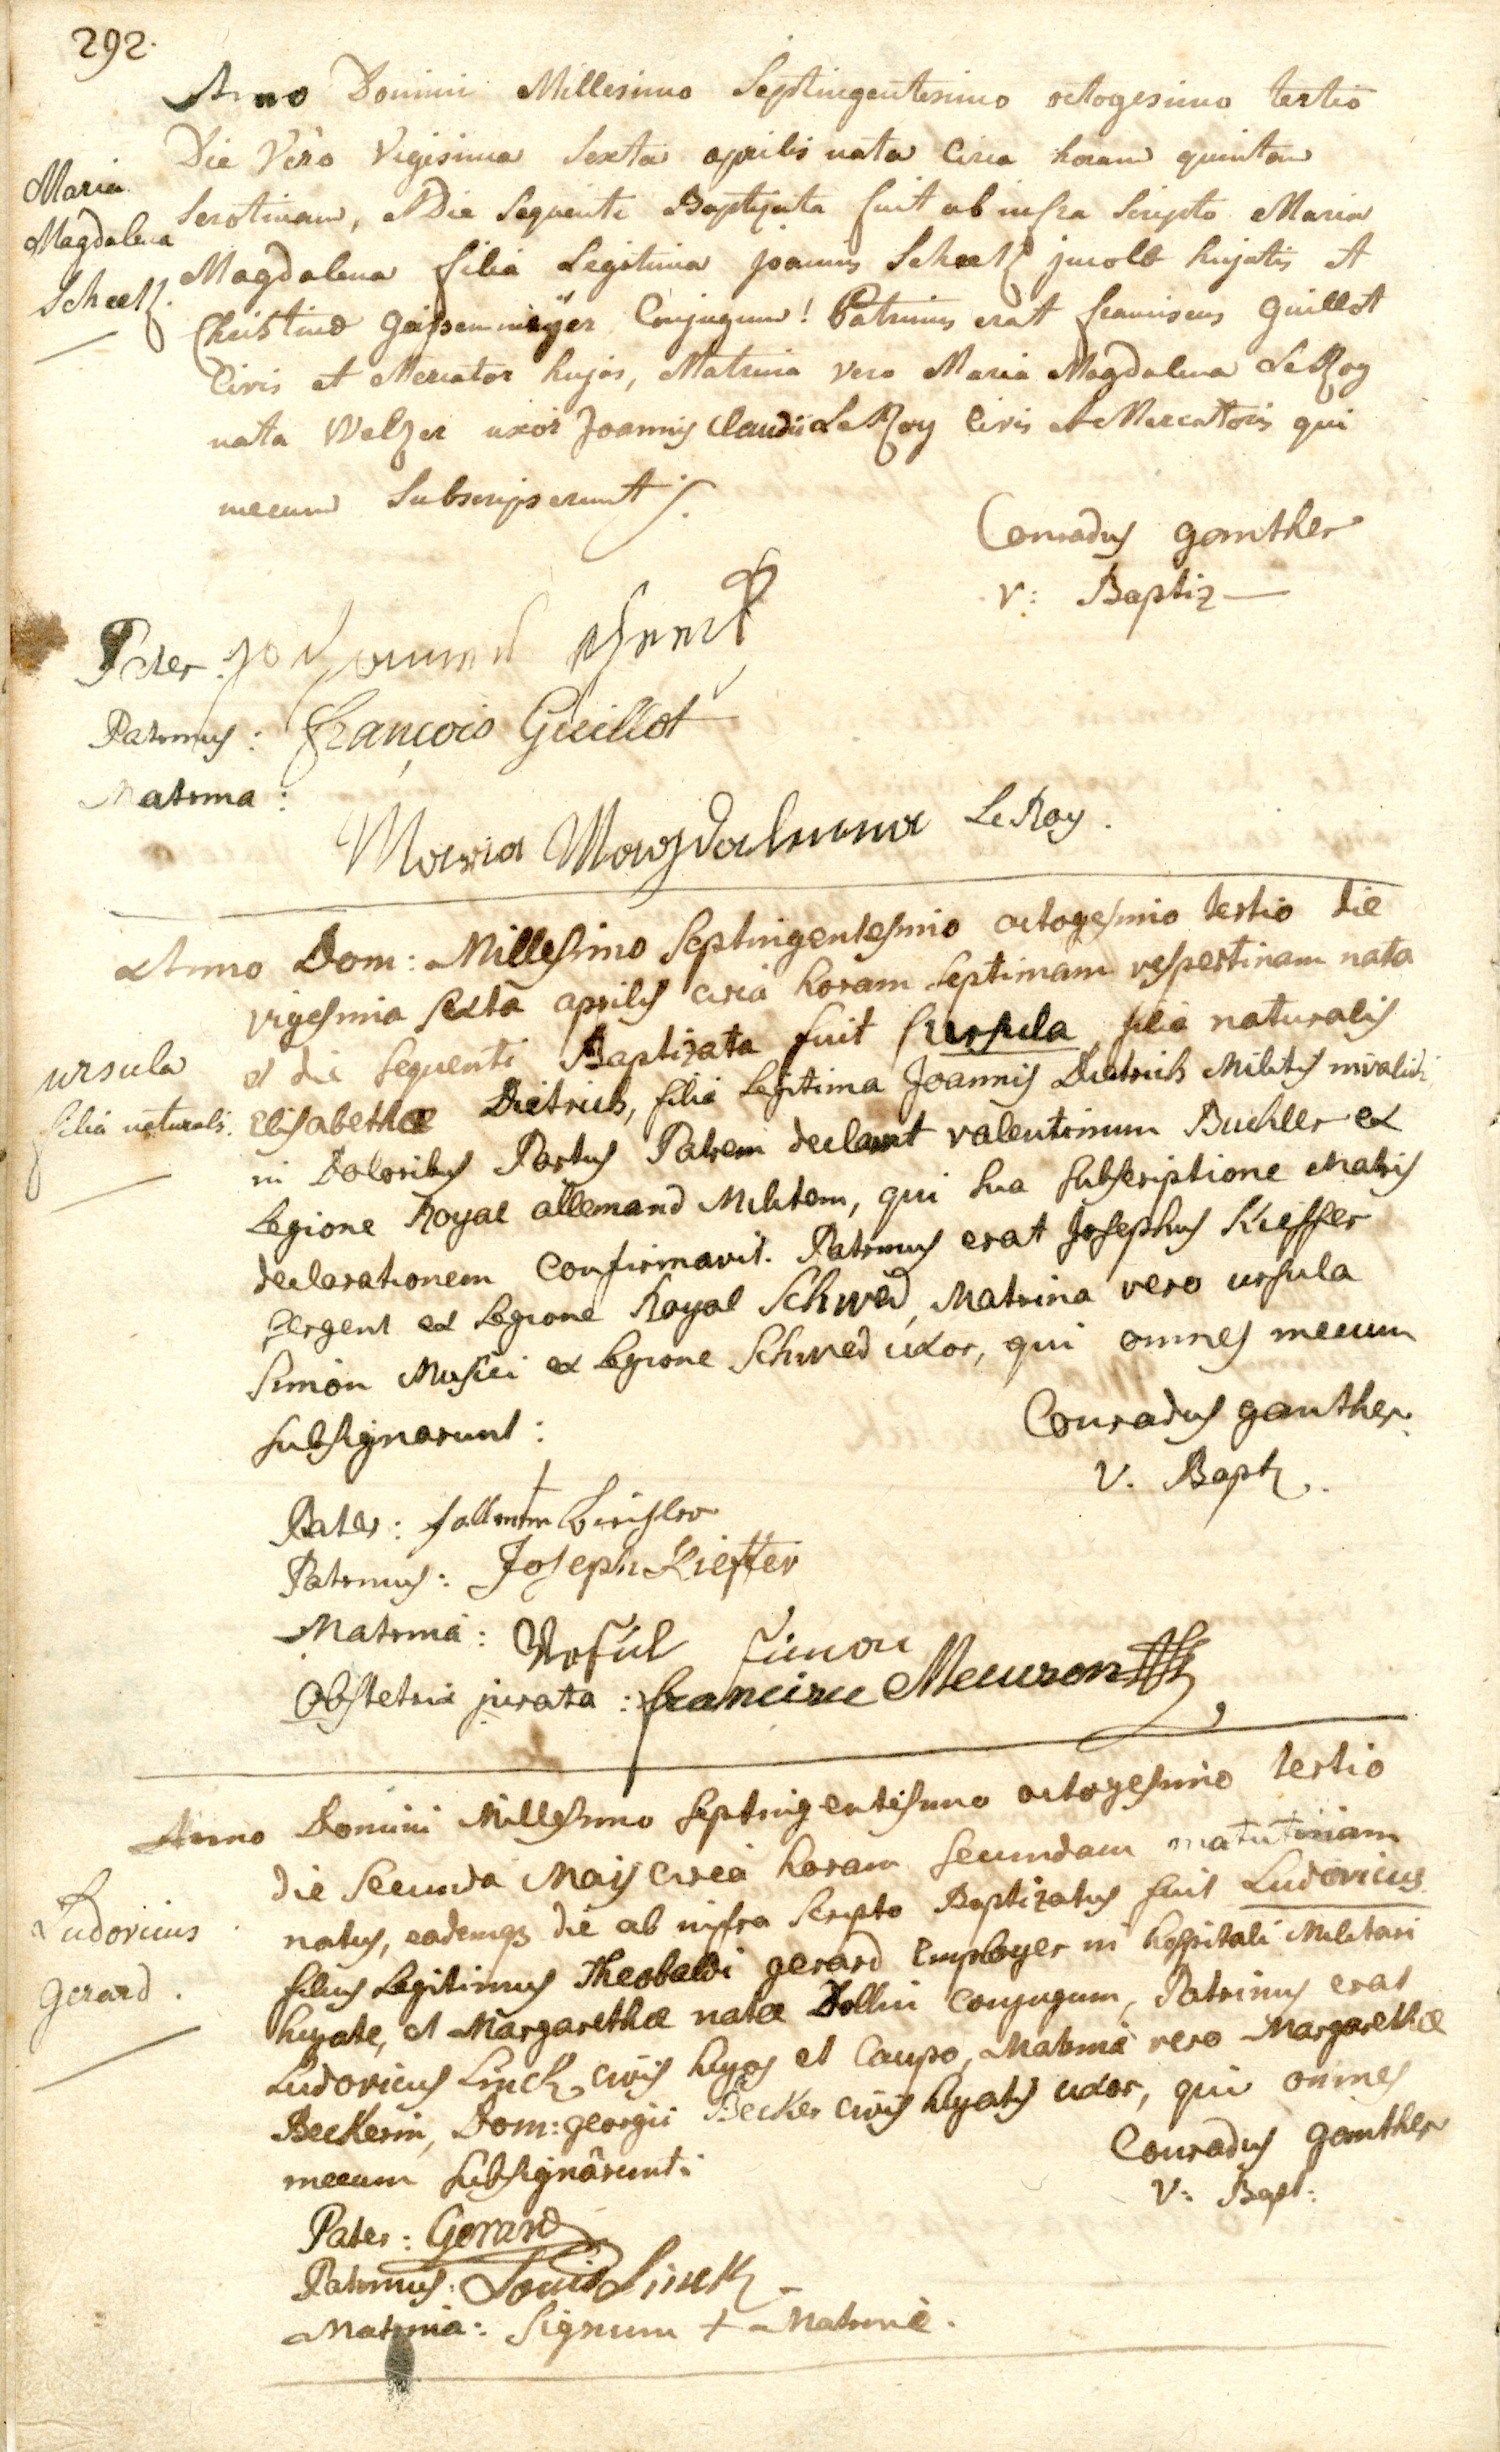 292.
Anno Domini Millesimo Septingentesimo octogesimo tertio
Die Vero Vigesima Sexta aprilis nata Circa horam quintam
Maria
Magdalena
Scheetz.
Serotinam, Die Sequenti Baptizata fuit ab infra Scripto Maria
Magdalena filia Legitima Joannis Scheetz incolae hujatis et
Christinae Geissenmeÿer Conjugum! Patrinus erat franciscus Guillot
Civis et Mercator hujas, Matrina vero Maria Magdalena LeRoy
nata Welzer uxor Joannis Claudii LeRoy Civis et Mercatoris qui
mecum Subscripserunt
Conradus ganther
V: Baptiz
Pater:
Patrinus: françois Guillot
Matrina:
Maria Magdalena LeRoy.
Anno Dom: Millesimo Septingentesimo octogesimo tertio die
vigesima sexta aprilis circa horam septimam vespertinam nata
et die sequenti Baptizata fuit ursula filia naturalis
ursula
filia naturalis.
Elisabethae Dietrich, filia legitima Joannis Dietrich Militis invalidi
in Doloribus Partus Patrem declarat valentinum Buchler ex
Legione Royal allemand Militem, qui sua subscriptione Matris
declarationem confirmavit. Patrinus erat Josephus Kieffer
sergent ex Legione Royal Schwed, Matrina vero ursula
Simon Musici ex Legione Schwed uxor, qui omnes mecum
subsignarunt:
Conradus ganther.
V. Bapt.
Pater:
Patrinus: Joseph Kieffer
Matrina: Ursul Simon
Obstetrix jurata: francisce Meuron
Anno Domini Millesimo Septingentesimo octogesimo tertio
die secunda Maij circa horam secundam matutinam
natus, eademq die ab infra scripto Baptizatus fuit Ludovicus
Ludovicus
gerard.
filius Legitimus Theobaldi gerard Employer in hospitali Militari
hujate, et Margarethae natae Dollin conjugum, Patrinus erat
Ludovicus Linck, civis hujas et Caupo, Matrina vero Margarethae
Beckerin, Dom: georgii Becker civis hujatis uxor, qui omnes
mecum subsignârunt:
Conradus ganther
V: Bapt:
Pater: Gerard
Patrinus: Louis Linck
Matrina: Signum + Matrinae.